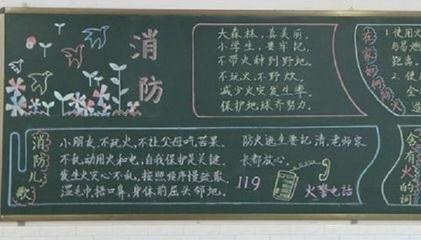 消防
大森林,真美丽,
小学生,要牢记,
不带火种到野地。
不玩火,不野炊,
减少火灾发生率,
保护地球齐努力。
在家如何防火
1.使用
距离。
2.使
消防儿歌
小朋友,不玩火,不让父母吃苦果。
不乱动用火和电,自我保护是关键。
发生火灾心不乱,按照顺序慢疏散。
湿毛巾,捂口鼻,身体前屈头邻地。
防火逃生要记清,老师家
长都放心。
119
火警电话
含有火的词